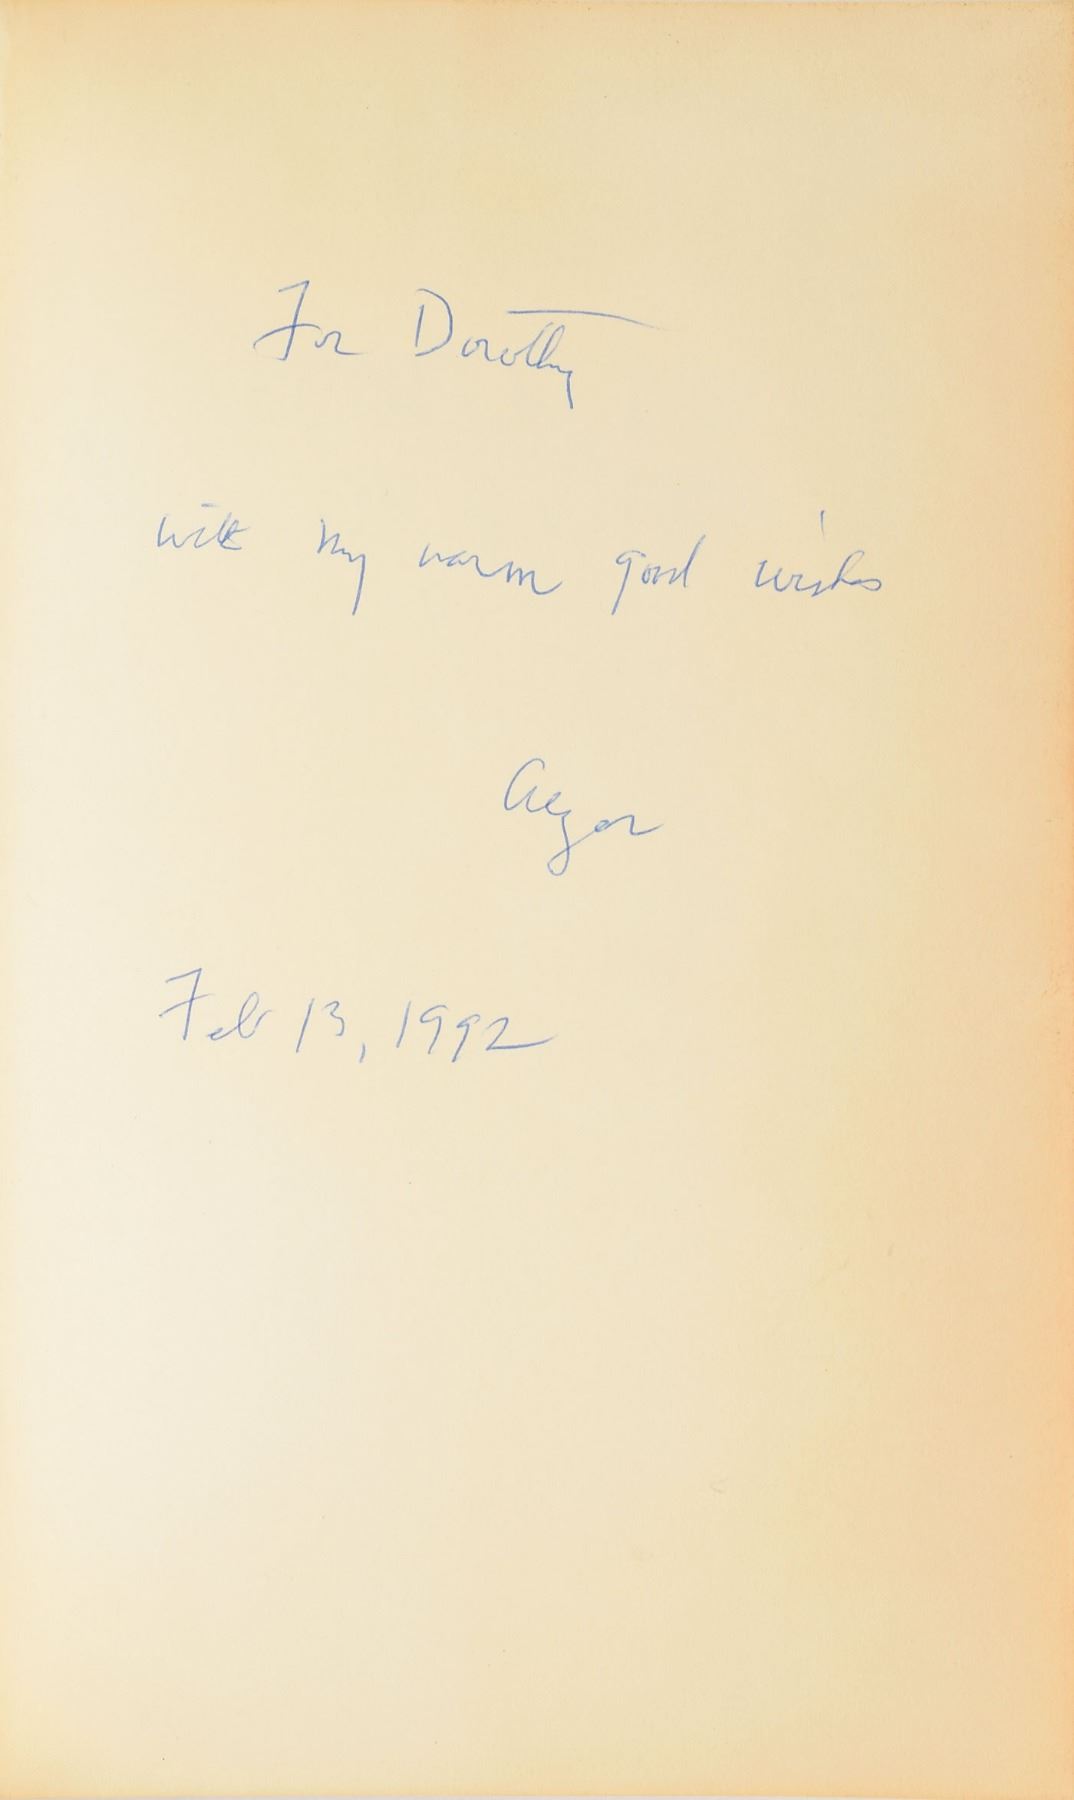 For Dorothy
with my warm good wishes
Feb 13, 1992